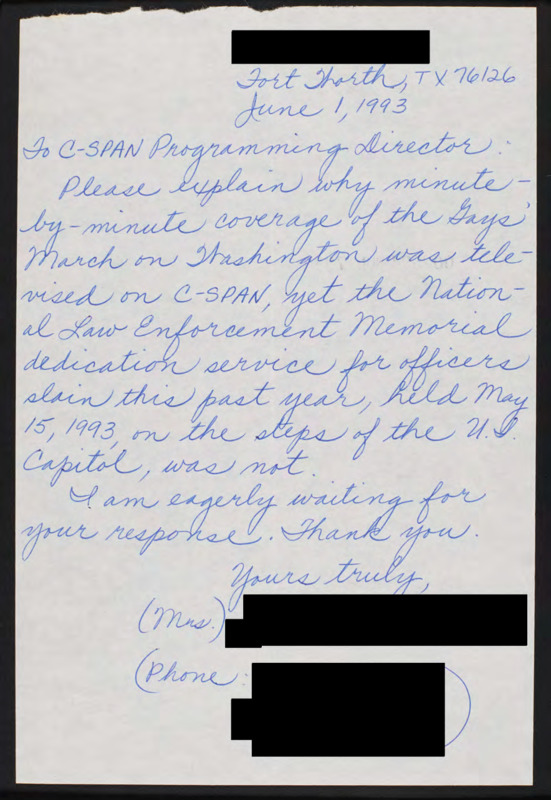 Fort Worth, TX 76126
June 1, 1993
To C-SPAN Programming Director:
Please explain why minute-
by-minute coverage of the Gays'
March on Washington was tele-
vised on C-SPAN, yet the Nation-
al Law Enforcement Memorial
dedication service for officers
slain this past year, held May
15, 1993, on the steps of the U.S.
Capitol, was not.
I am eagerly waiting for
your response. Thank you.
Yours truly,
(Mrs.)
(Phone: )